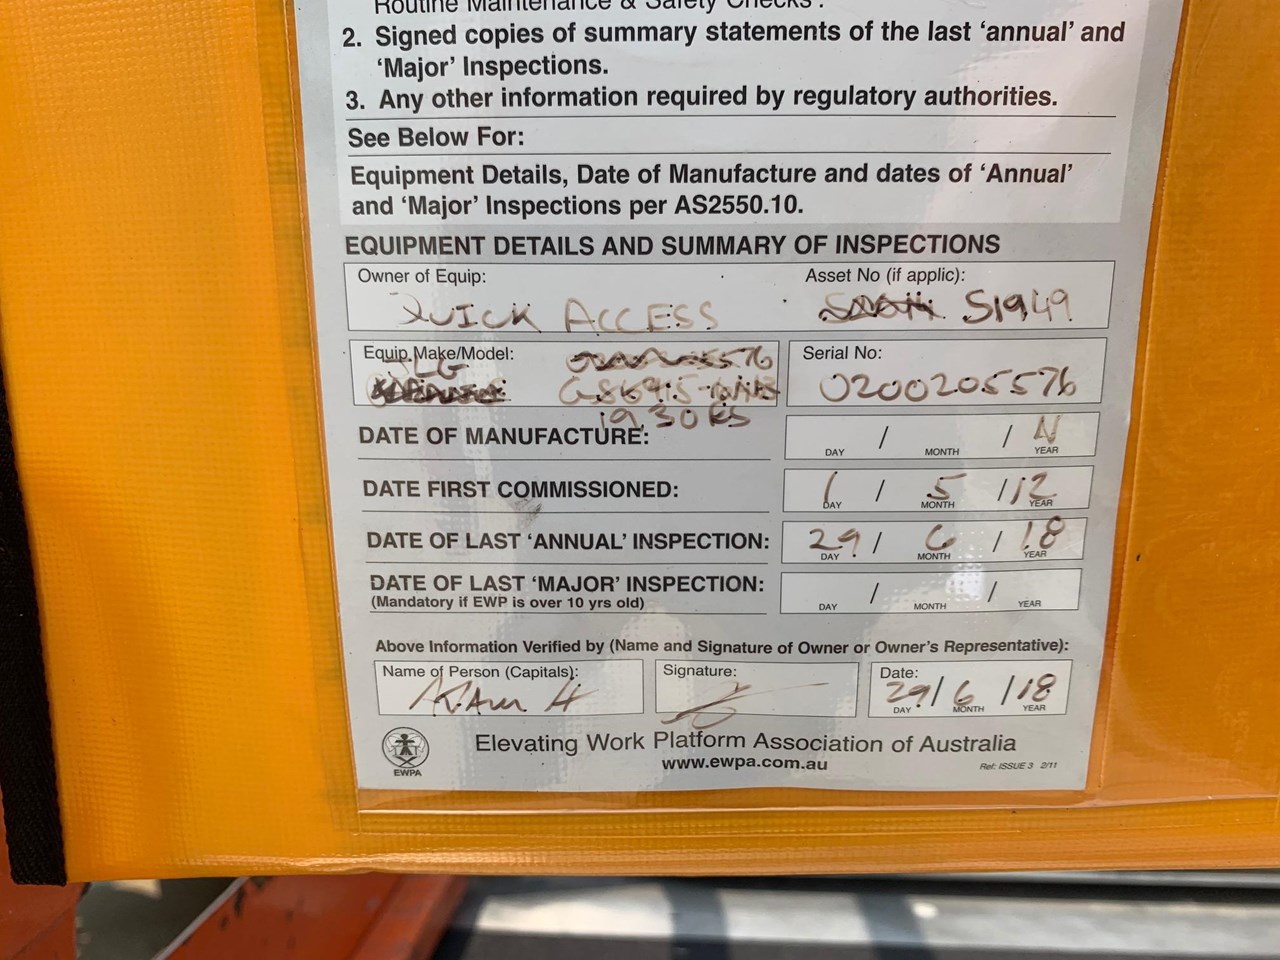 Routine Maintenance & Safety Checks'.
2. Signed copies of summary statements of the last 'annual' and
'Major' Inspections.
3. Any other information required by regulatory authorities.
See Below For:
Equipment Details, Date of Manufacture and dates of 'Annual'
and 'Major' Inspections per AS2550.10.
EQUIPMENT DETAILS AND SUMMARY OF INSPECTIONS
Owner of Equip: Asset No (if applic):
QUICK ACCESS S1949
Equip Make/Model: Serial No:
JLG
0200205576
1930ES
DATE OF MANUFACTURE: / / N
DAY MONTH YEAR
DATE FIRST COMMISSIONED: 1 / 5 / 12
DAY MONTH YEAR
DATE OF LAST 'ANNUAL' INSPECTION: 29 / 6 / 18
DAY MONTH YEAR
DATE OF LAST 'MAJOR' INSPECTION: / /
(Mandatory if EWP is over 10 yrs old) DAY MONTH YEAR
Above Information Verified by (Name and Signature of Owner or Owner's Representative):
Name of Person (Capitals): Signature: Date:
Adam H 29 / 6 / 18
DAY MONTH YEAR
Elevating Work Platform Association of Australia
EWPA www.ewpa.com.au Ref: ISSUE 3 2/11